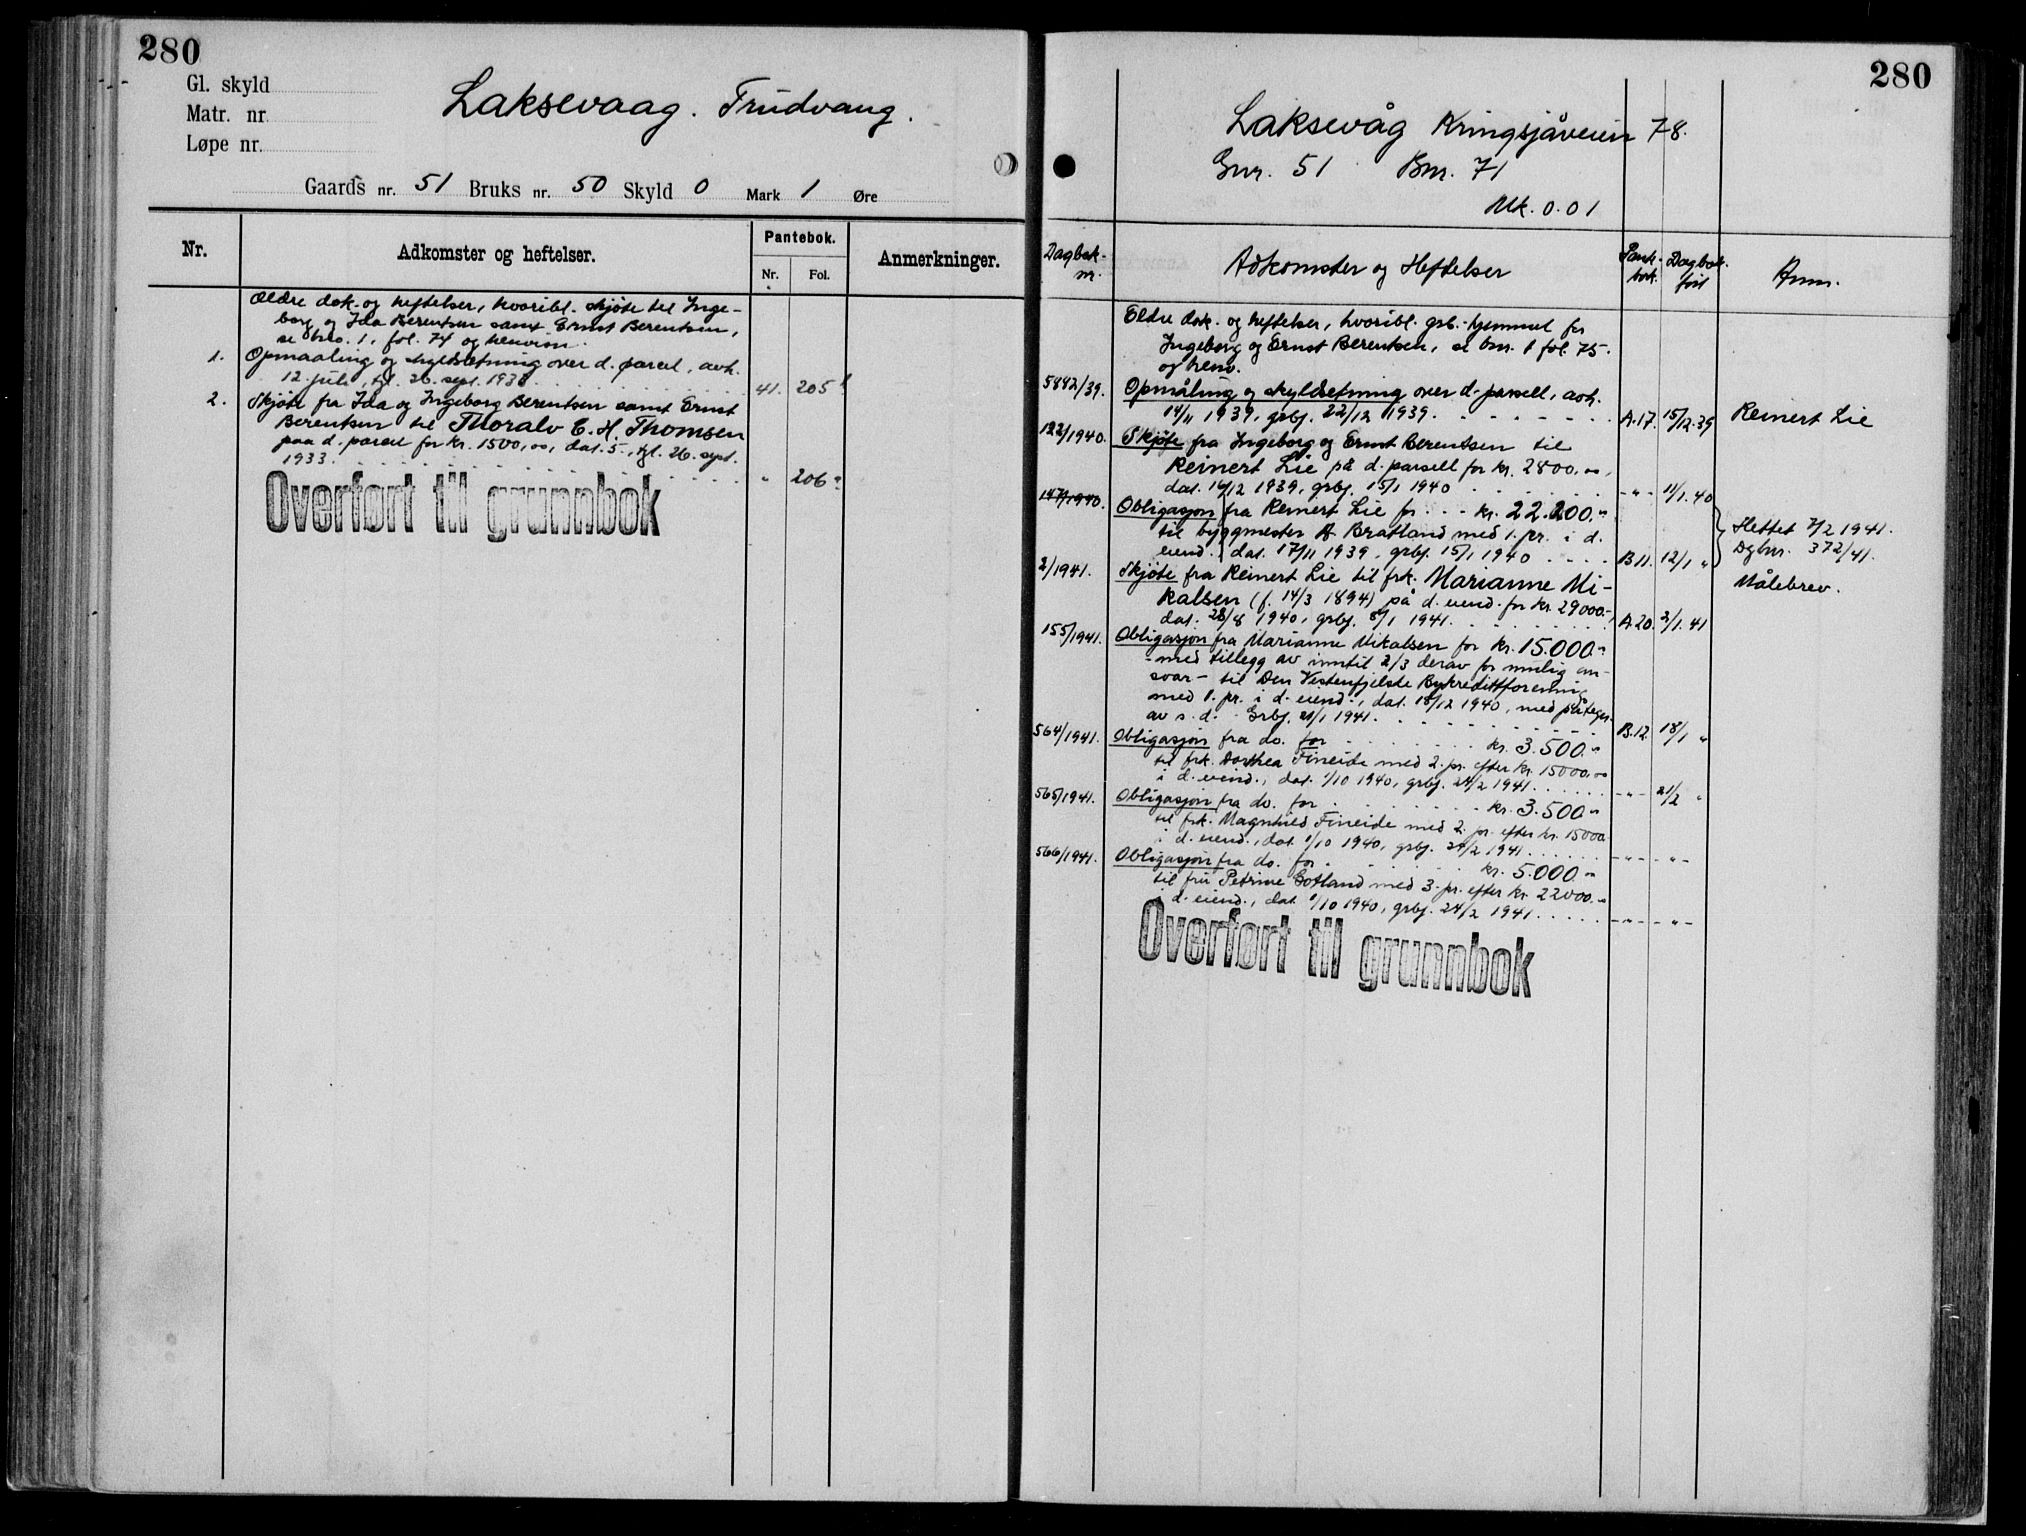 280
Gl. skyld
Matr. nr.
Løpe nr.
Laksevaag. Trudvang.
Gaards nr. 51 Bruks nr. 50 Skyld 0 Mark 1 Øre
Nr. Adkomster og heftelser. Pantebok. Anmerkninger.
Nr. Fol.
Ældre dok. og heftelser, hvoribl. skjøte til Inge-
borg og Ida Berentsen samt Ernst Berentsen,
se bno. 1, fol. 74 og henvisn.
1. Opmaaling og skyldsetning over d. parcel, avh.
12. juli, tgl. 26. sept. 1933 41. 205
2. Skjøte fra Ida og Ingeborg Berentsen samt Ernst
Berentsen til Thoralv C. H. Thomsen
paa d. parcel for kr. 1500,00, dat. 5., tgl. 26. sept.
1933. " 206
Overført til grunnbok
280
Laksevåg Kringsjåveien 78.
Gnr. 51 Bnr. 71
Mk. 0.01
Dagbok-nr. Adkomster og Heftelser Pantbok. Dagbok-ført Anm.
Eldre dok. og heftelser, hvoribl. grb.-hjemmel for
Ingeborg og Ernst Berentsen, se bnr. 1 fol. 75.
og henv.
5882/39. Opmåling og skyldsetning over d. parsell, avh.
14/11 1939, grbf. 22/12 1939. A.17. 15/12.39 Reinert Lie
122/1940. Skjøte fra Ingeborg og Ernst Berentsen til
Reinert Lie på d. parsell for kr. 2800.00,
dat. 16/12 1939, grbf. 15/1 1940 - " - 11/1.40
147/1940. Obligasjon fra Reinert Lie for kr. 22.200.-
til byggmester A. Bratland med 1. pr. i d.
eiend., dat. 17/11 1939, grbf. 15/1 1940 B.11. 12/1 " Slettet 7/2 1941. Dgbnr. 372/41.
2/1941. Skjøte fra Reinert Lie til frk. Marianne Mi- Målebrev.
kalsen (f. 14/3 1894) på d. eiend. for kr. 29000.-,
dat. 28/8 1940, grbf. 8/1 1941. A.20. 2/1.41
155/1941. Obligasjon fra Marianne Mikalsen for kr. 15.000.-
- med tillegg av inntil 2/3 derav for mulig an-
svar - til Den Vestenfjelske Bykredittforening
med 1. pr. i d. eiend., dat. 18/12 1940, med påtegn.
av s. d. Grbf. 21/1 1941. B.12. 18/1 "
564/1941. Obligasjon fra do. for kr. 3.500.-
til frk. Dorthea Fineide med 2. pr. efter kr. 15000.00
i d. eiend., dat. 1/10 1940, grbf. 24/2 1941. - " - 21/2 "
565/1941. Obligasjon fra do. for kr. 3.500.-
til frk. Magnhild Fineide med 2. pr. efter kr. 15000
i d. eiend., dat. 1/10 1940, grbf. 24/2 1941. - " - - " -
566/1941. Obligasjon fra do. for kr. 5.000.-
til fru Petrine Gotland med 3. pr. efter kr. 22000.-
i d. eiend., dat. 1/10 1940, grbf. 24/2 1941. - " - - " -
Overført til grunnbok